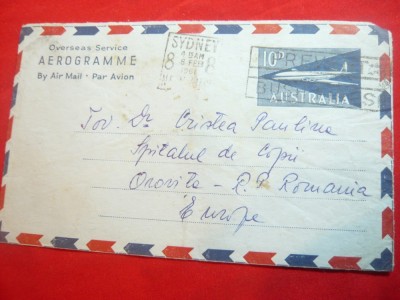 Overseas Service
AEROGRAMME
By Air Mail · Par Avion
SYDNEY
8
8
10D
AUSTRALIA
Tov. Dr Cristea Paulina
Spitalul de Copii
Oravita - R.P. Romania
Europe